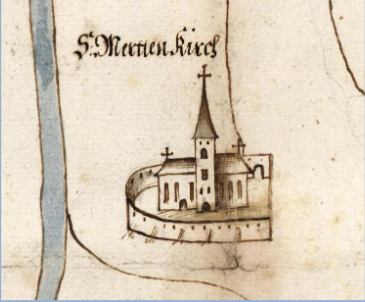 St. Mertien Kirch